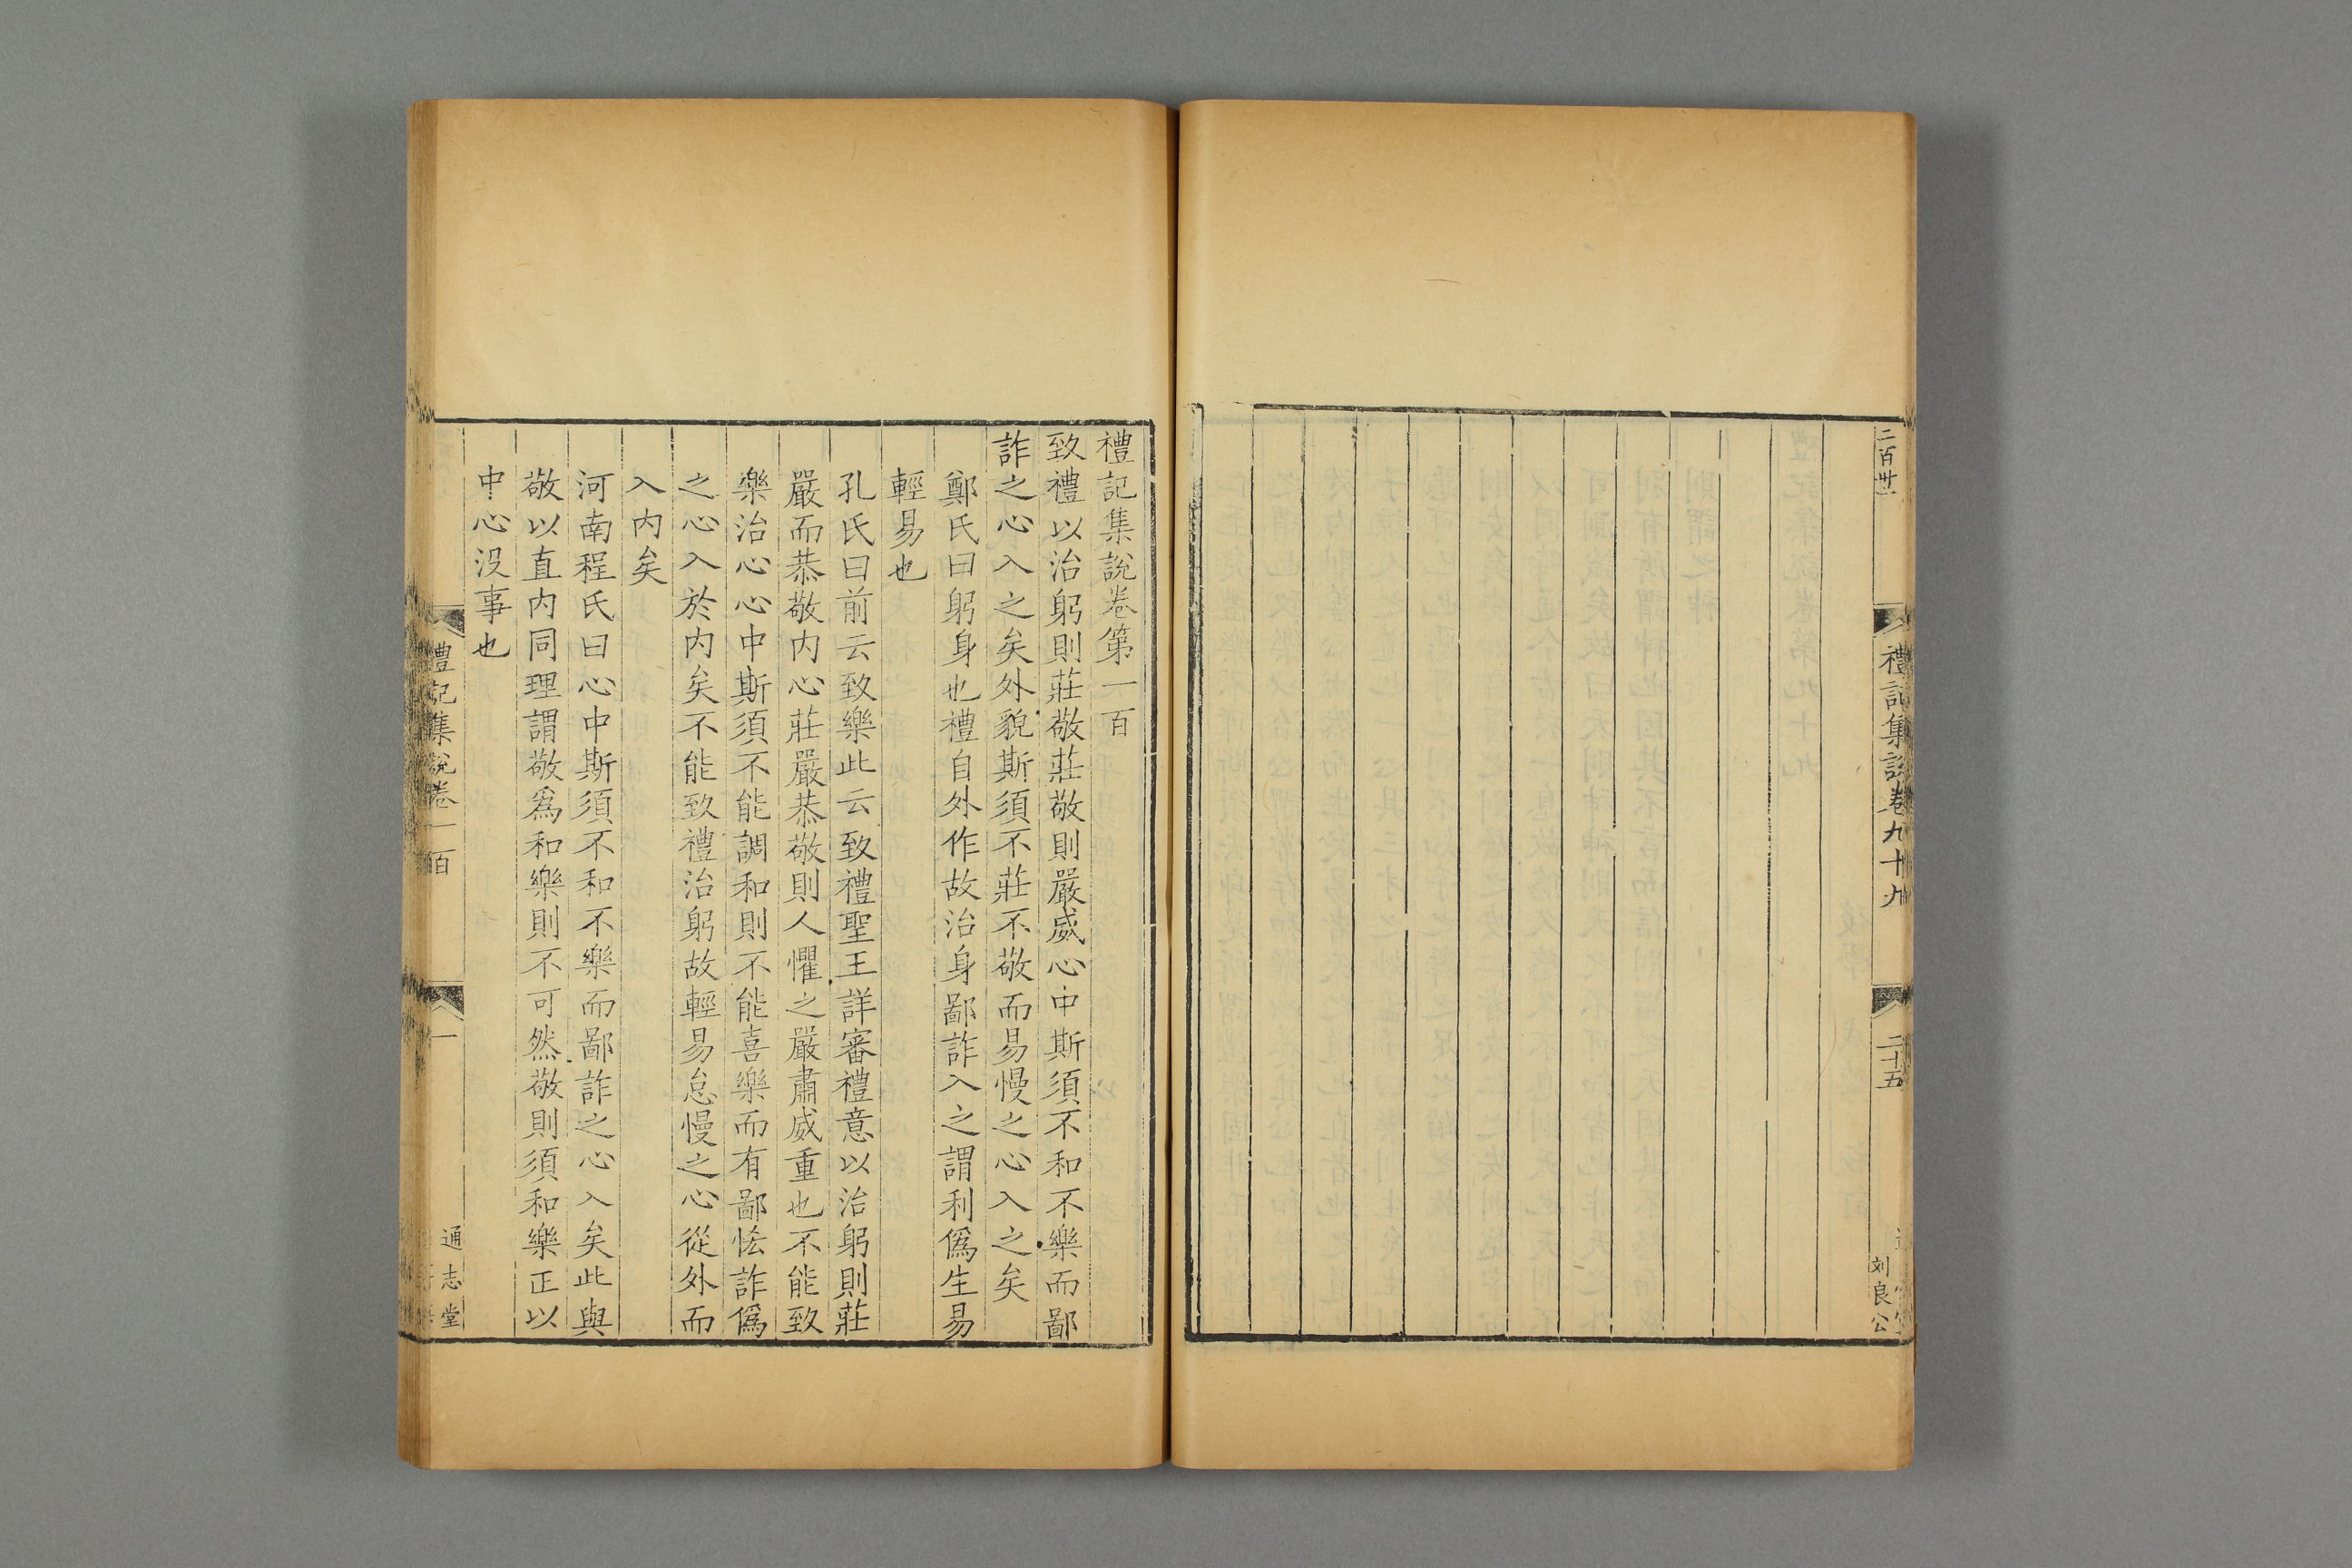 二百卅一
禮記集說卷九十九
二十五
刘良公
禮記集說卷第一百
致禮以治躬則莊敬莊敬則嚴威心中斯須不和不樂而鄙
詐之心入之矣外貌斯須不莊不敬而易慢之心入之矣
鄭氏曰躬身也禮自外作故治身鄙詐入之謂利僞生易
輕易也
孔氏曰前云致樂此云致禮聖王詳審禮意以治躬則莊
嚴而恭敬内心莊嚴恭敬則人懼之嚴肅威重也不能致
樂治心心中斯須不能調和則不能喜樂而有鄙恡詐僞
之心入於内矣不能致禮治躬故輕易怠慢之心從外而
入内矣
河南程氏曰心中斯須不和不樂而鄙詐之心入矣此與
敬以直内同理謂敬爲和樂則不可然敬則須和樂正以
中心没事也
禮記集說卷一百
一
通志堂